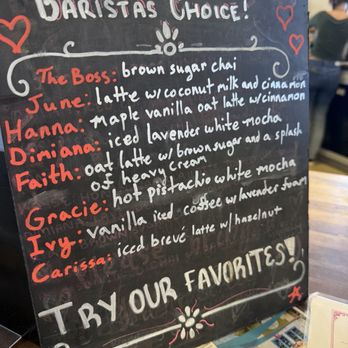 BARISTAS CHOICE!
The Boss: brown sugar chai
June: latte w/coconut milk and cinnamon
Hanna: maple vanilla oat latte w/cinnamon
Dimiana: iced lavender white mocha
Faith: oat latte w/brown sugar and a splash
of heavy cream
Gracie: hot pistachio white mocha
Ivy: vanilla iced coffee w/lavender foam
Carissa: iced brevé latte w/ hazelnut
TRY OUR FAVORITES!